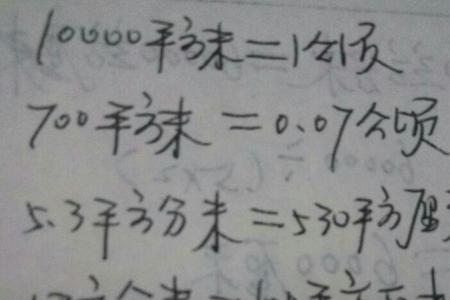 10000平方米=1公顷
700平方米=0.07公顷
5.3平方分米=530平方厘